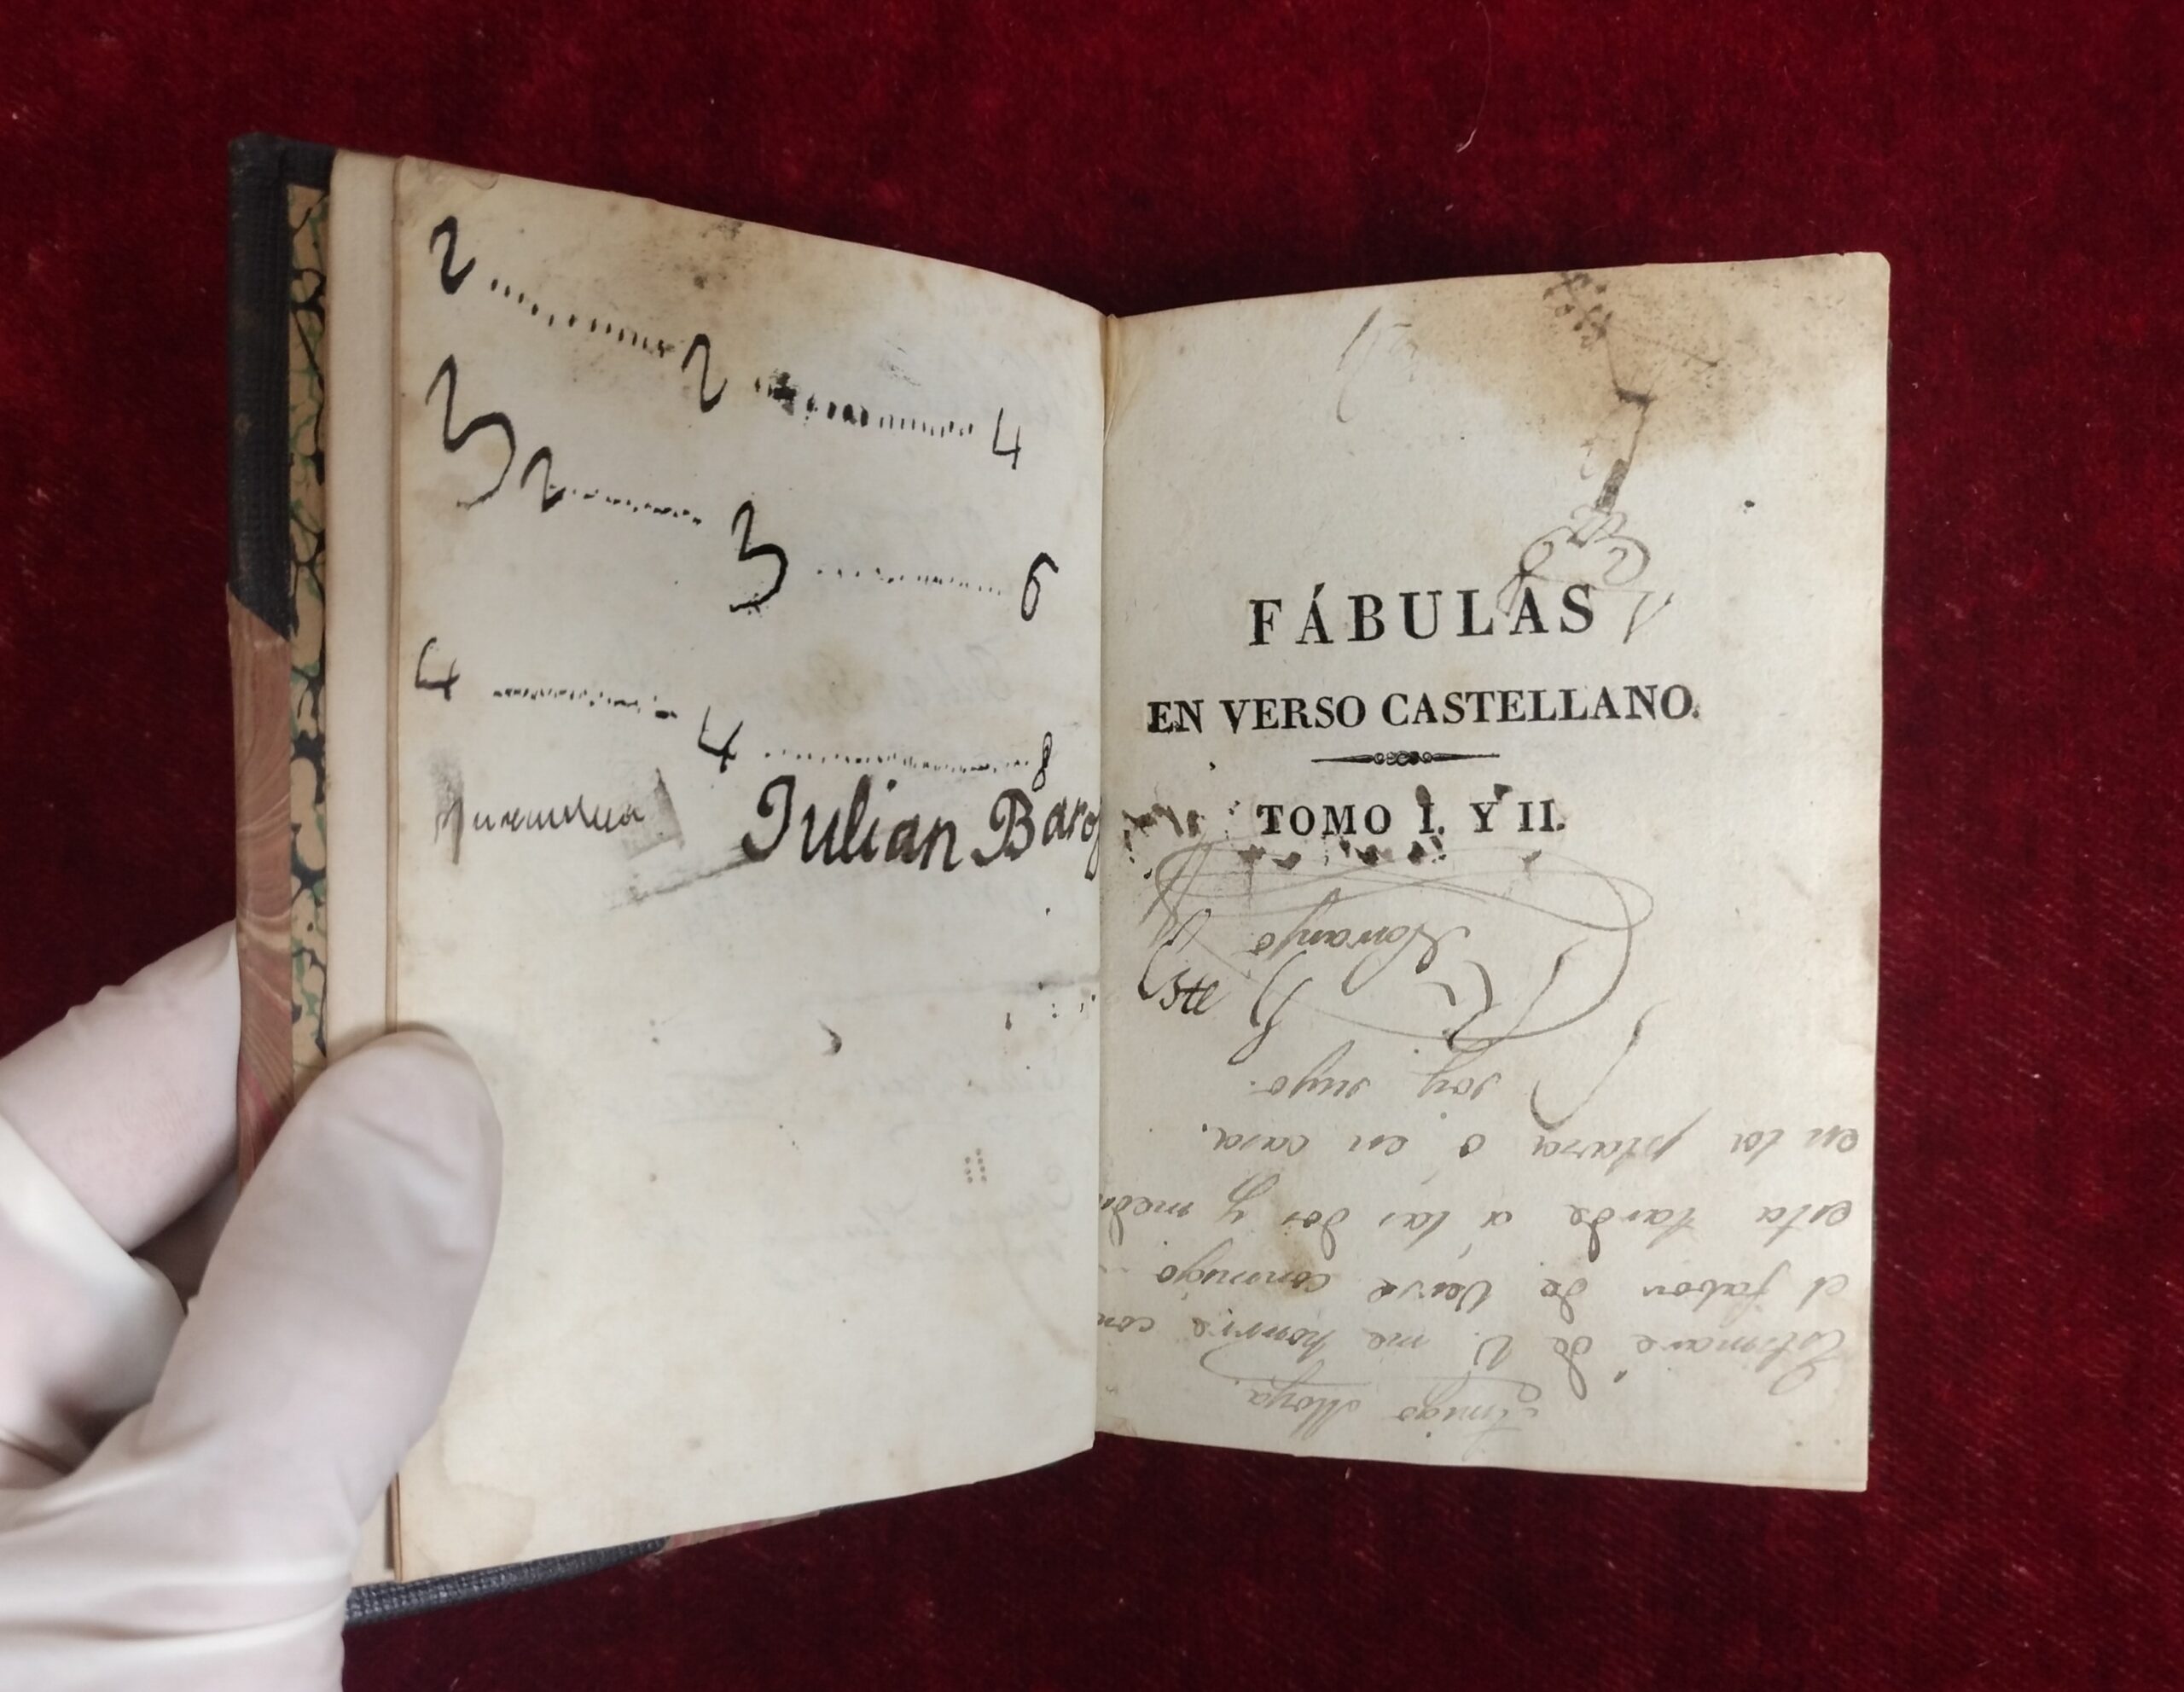 2 ........ 2 ........ 4
3
2 ........ 3 ........ 6
4 ........ 4 ........ 8
Julian Baro
FÁBULAS
EN VERSO CASTELLANO.
TOMO I. Y II.
Este
Amigo Moya.
Estimaré de V. me honrre con
el fabor de verse conmigo
esta tarde á las dos y medi
en la plaza ó en casa.
soy suyo.
Naranjo